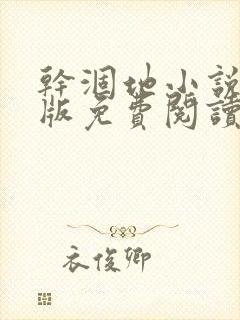 幹涸地小説
版免費閱讀
衣俊卿